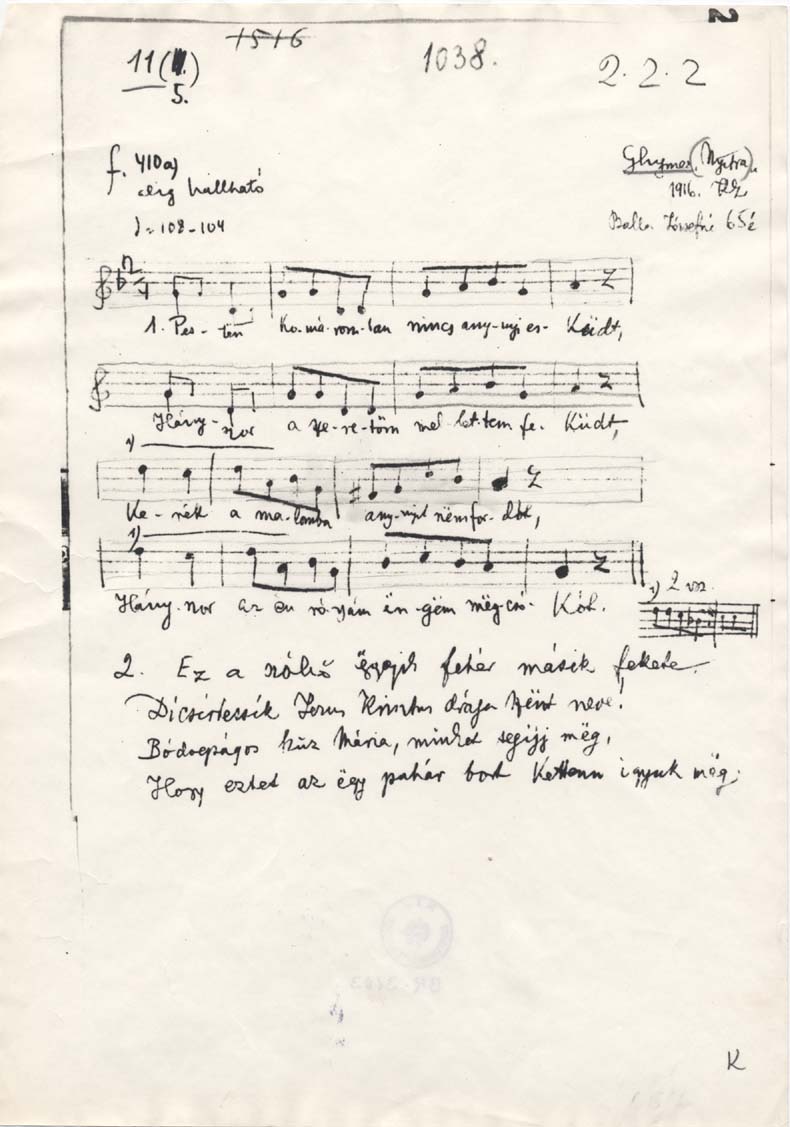 1516
1038.
11( )
5.
2. 2. 2
f. 410a)
alig hallható
♩=108-104
Ghymes (Nyitra),
1916.
65 é
1. Pes- ten Ko-má-rom-ban nincs any-nyi es- Küdt,
Hány-szor a sze-re-tőm mel-let-tem fe- Küdt,
1)
Ke-rék a ma-lomba any-nyit nëmfor- dót,
1)
Hány-szor az én ró-zsám ën-gëm mëg-csó- Kót.
1) 2 vsz.
2. Ez a szőllő ëggyik fehér másik fekete.
Dícsértessík Jezus Krisztus drága szënt neve!
Bódogságos szűz Mária, minket segijj mëg,
Hogy eztet az ëgy pohár bort Kettenn igyuk mëg;
K